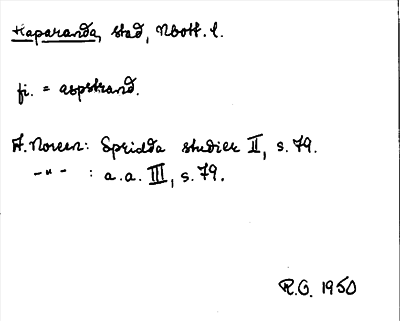 Haparanda, stad, Nbott. l.
fi. = aspstrand.
A. Noreen: Spridda studier II, s. 79.
-"- : a.a. III, s. 79.
R.O. 1950